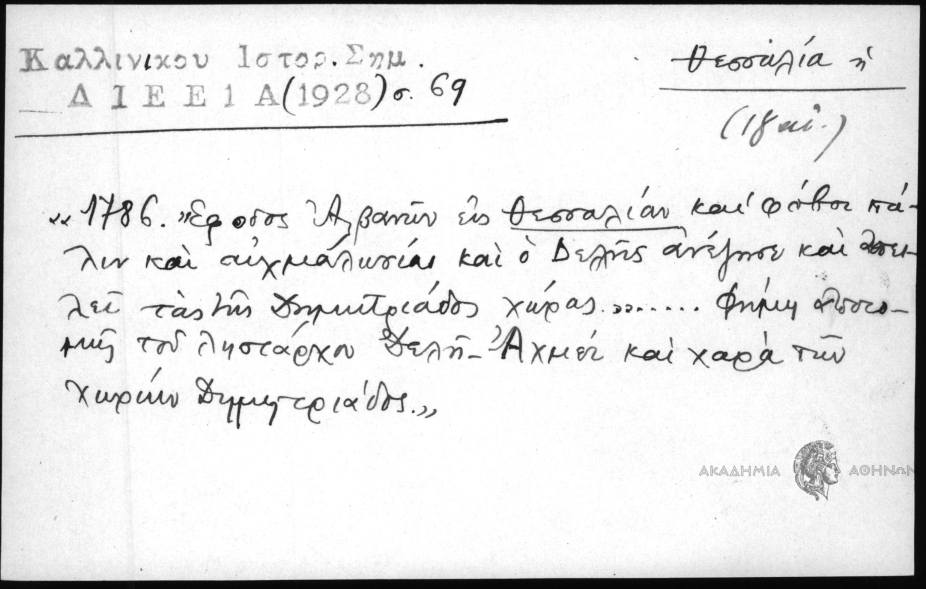 Καλλινικου Ιστορ. Σημ.
Δ Ι Ε Ε 1 Α (1928) σ. 69
Θεσσαλία ἡ
(18 αἰ.)
«1786. Ἔφοδος Ἀλβανῶν εἰς Θεσσαλίαν καὶ φόβοι πά-
λιν καὶ αἰχμαλωσίαι καὶ ὁ Δελῆς ἀνέζησε καὶ ἀπει-
λεῖ τὰς τῆς Δημητριάδος χώρας........ Φήμη ἀποτο-
μῆς τοῦ λῃστάρχου Δελῆ-Ἀχμὲτ καὶ χαρὰ τῶν
χωρίων Δημητριάδος.»
ΑΚΑΔΗΜΙΑ ΑΘΗΝΩΝ